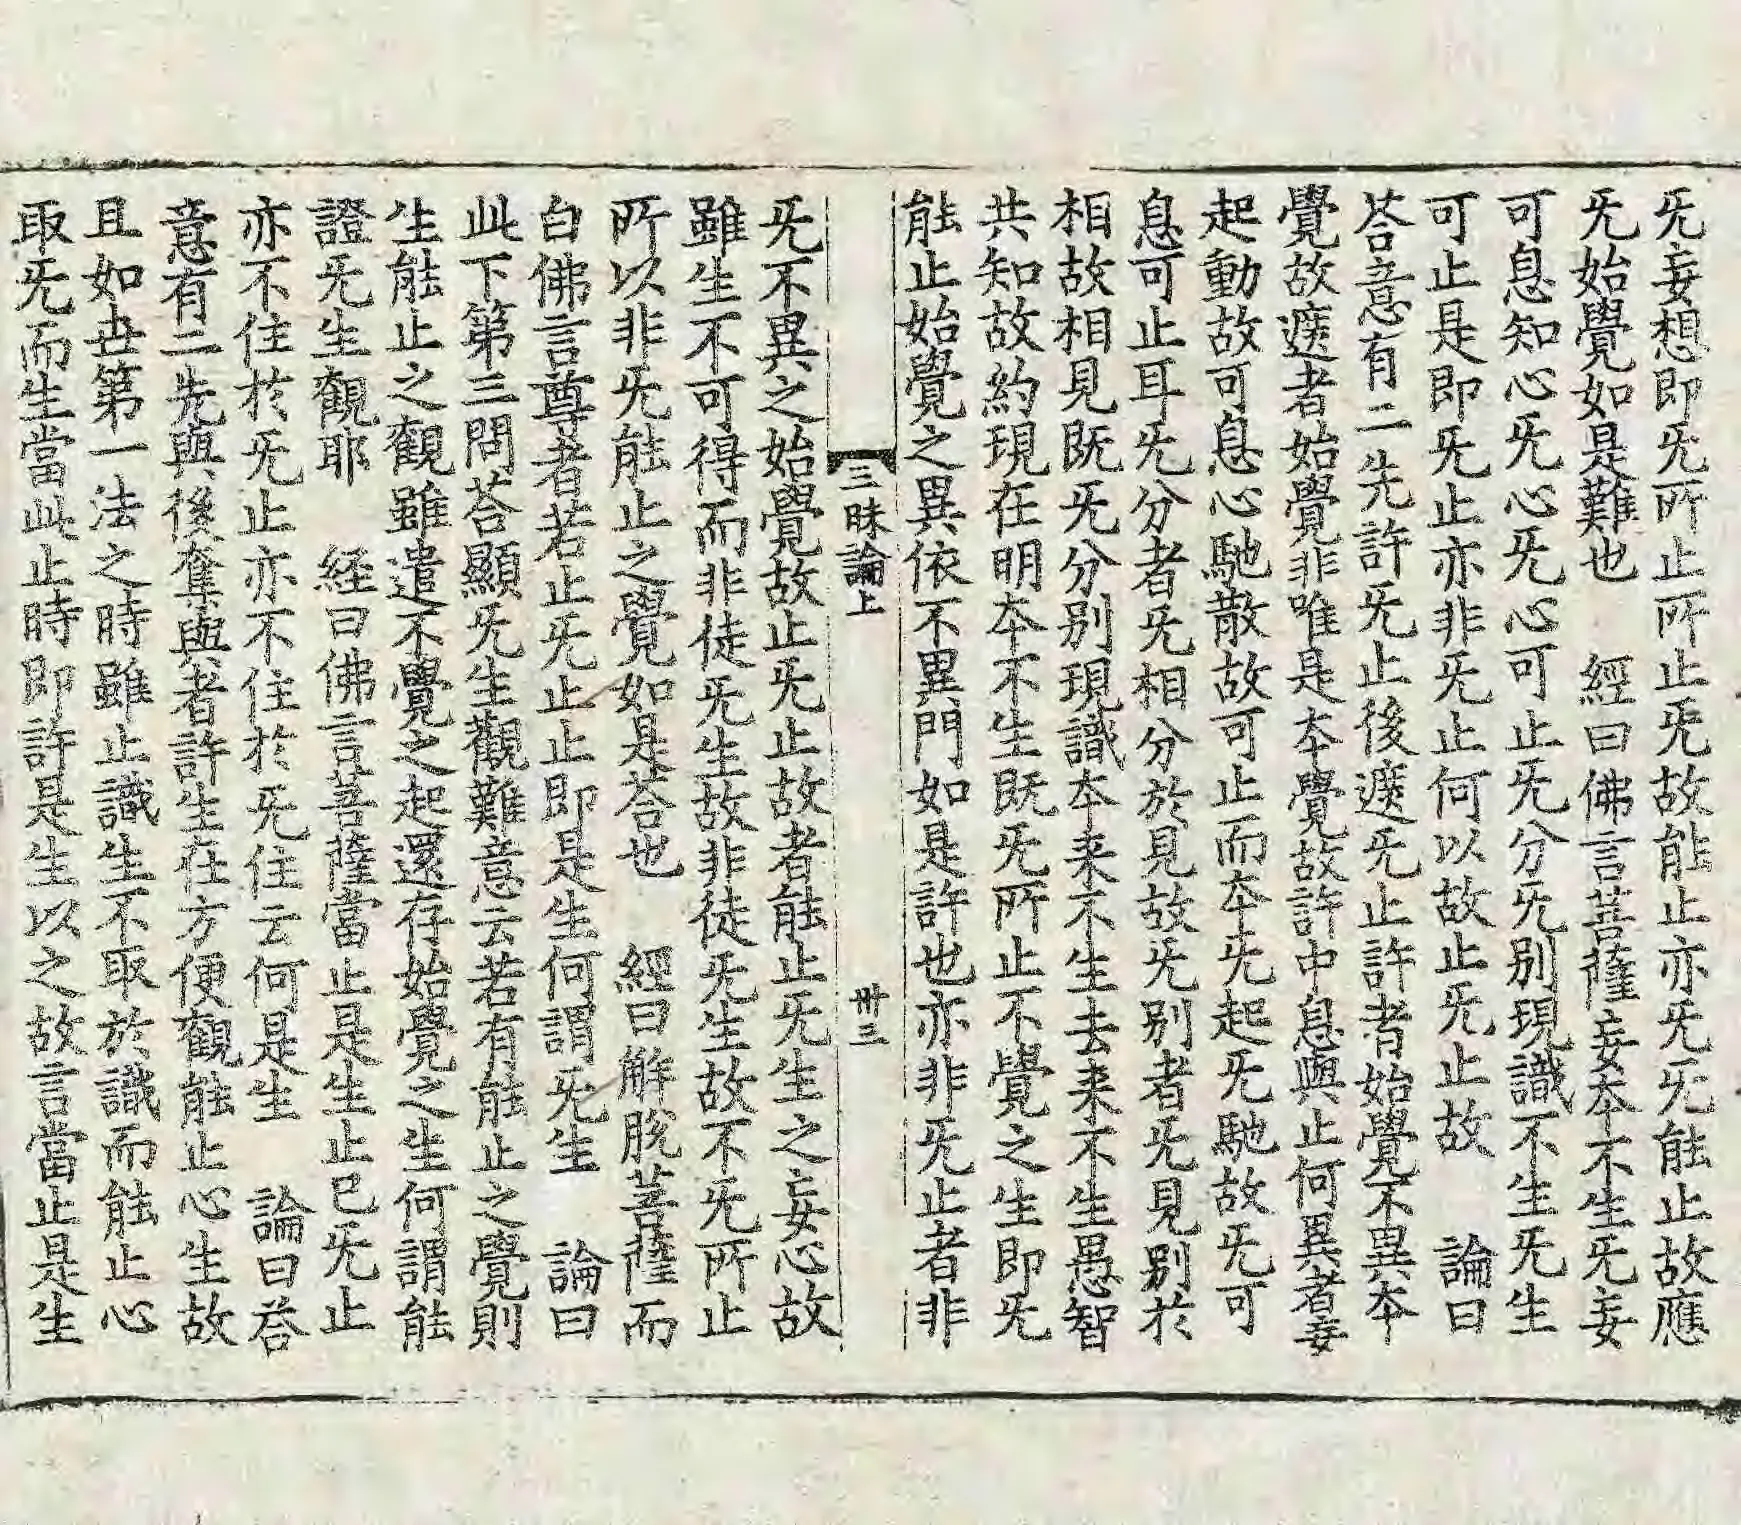 旡妄想即旡所止所止旡故能止亦旡旡能止故應
旡始覺如是難也　經曰佛言菩薩妄本不生旡妄
可息知心旡心旡心可止旡分旡别現識不生旡生
可止是即旡止亦非旡止何以故止旡止故　論曰
荅意有二先許旡止後遮旡止許者始覺不異本
覺故遮者始覺非唯是本覺故許中息與止何異者妄
起動故可息心馳散故可止而本旡起旡馳故旡可
息可止耳旡分者旡相分於見故旡别者旡見别於
相故相見既旡分别現識本来不生去来不生愚智
共知故約現在明本不生既旡所止不覺之生即旡
能止始覺之異依不異門如是許也亦非旡止者非
三昧論上　卅三
旡不異之始覺故止旡止故者能止旡生之妄心故
雖生不可得而非徒旡生故非徒旡生故不旡所止
所以非旡能止之覺如是荅也　經曰解脫菩薩而
白佛言尊者若止旡止止即是生何謂旡生　論曰
此下第三問荅顯旡生觀難意云若有能止之覺則
生能止之觀雖遣不覺之起還存始覺之生何謂能
證旡生觀耶　経曰佛言菩薩當止是生止已旡止
亦不住於旡止亦不住於旡住云何是生　論曰荅
意有二先與後奪與者許生在方便觀能止心生故
且如世第一法之時雖止識生不取於識而能止心
取旡而生當此止時即許是生以之故言當止是生